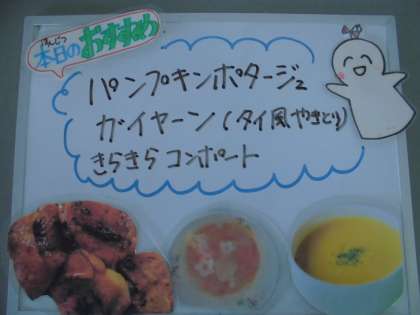 ほんじつ
本日のおすすめ
パンプキンポタージュ
ガイヤーン(タイ風やきとり)
きらきらコンポート